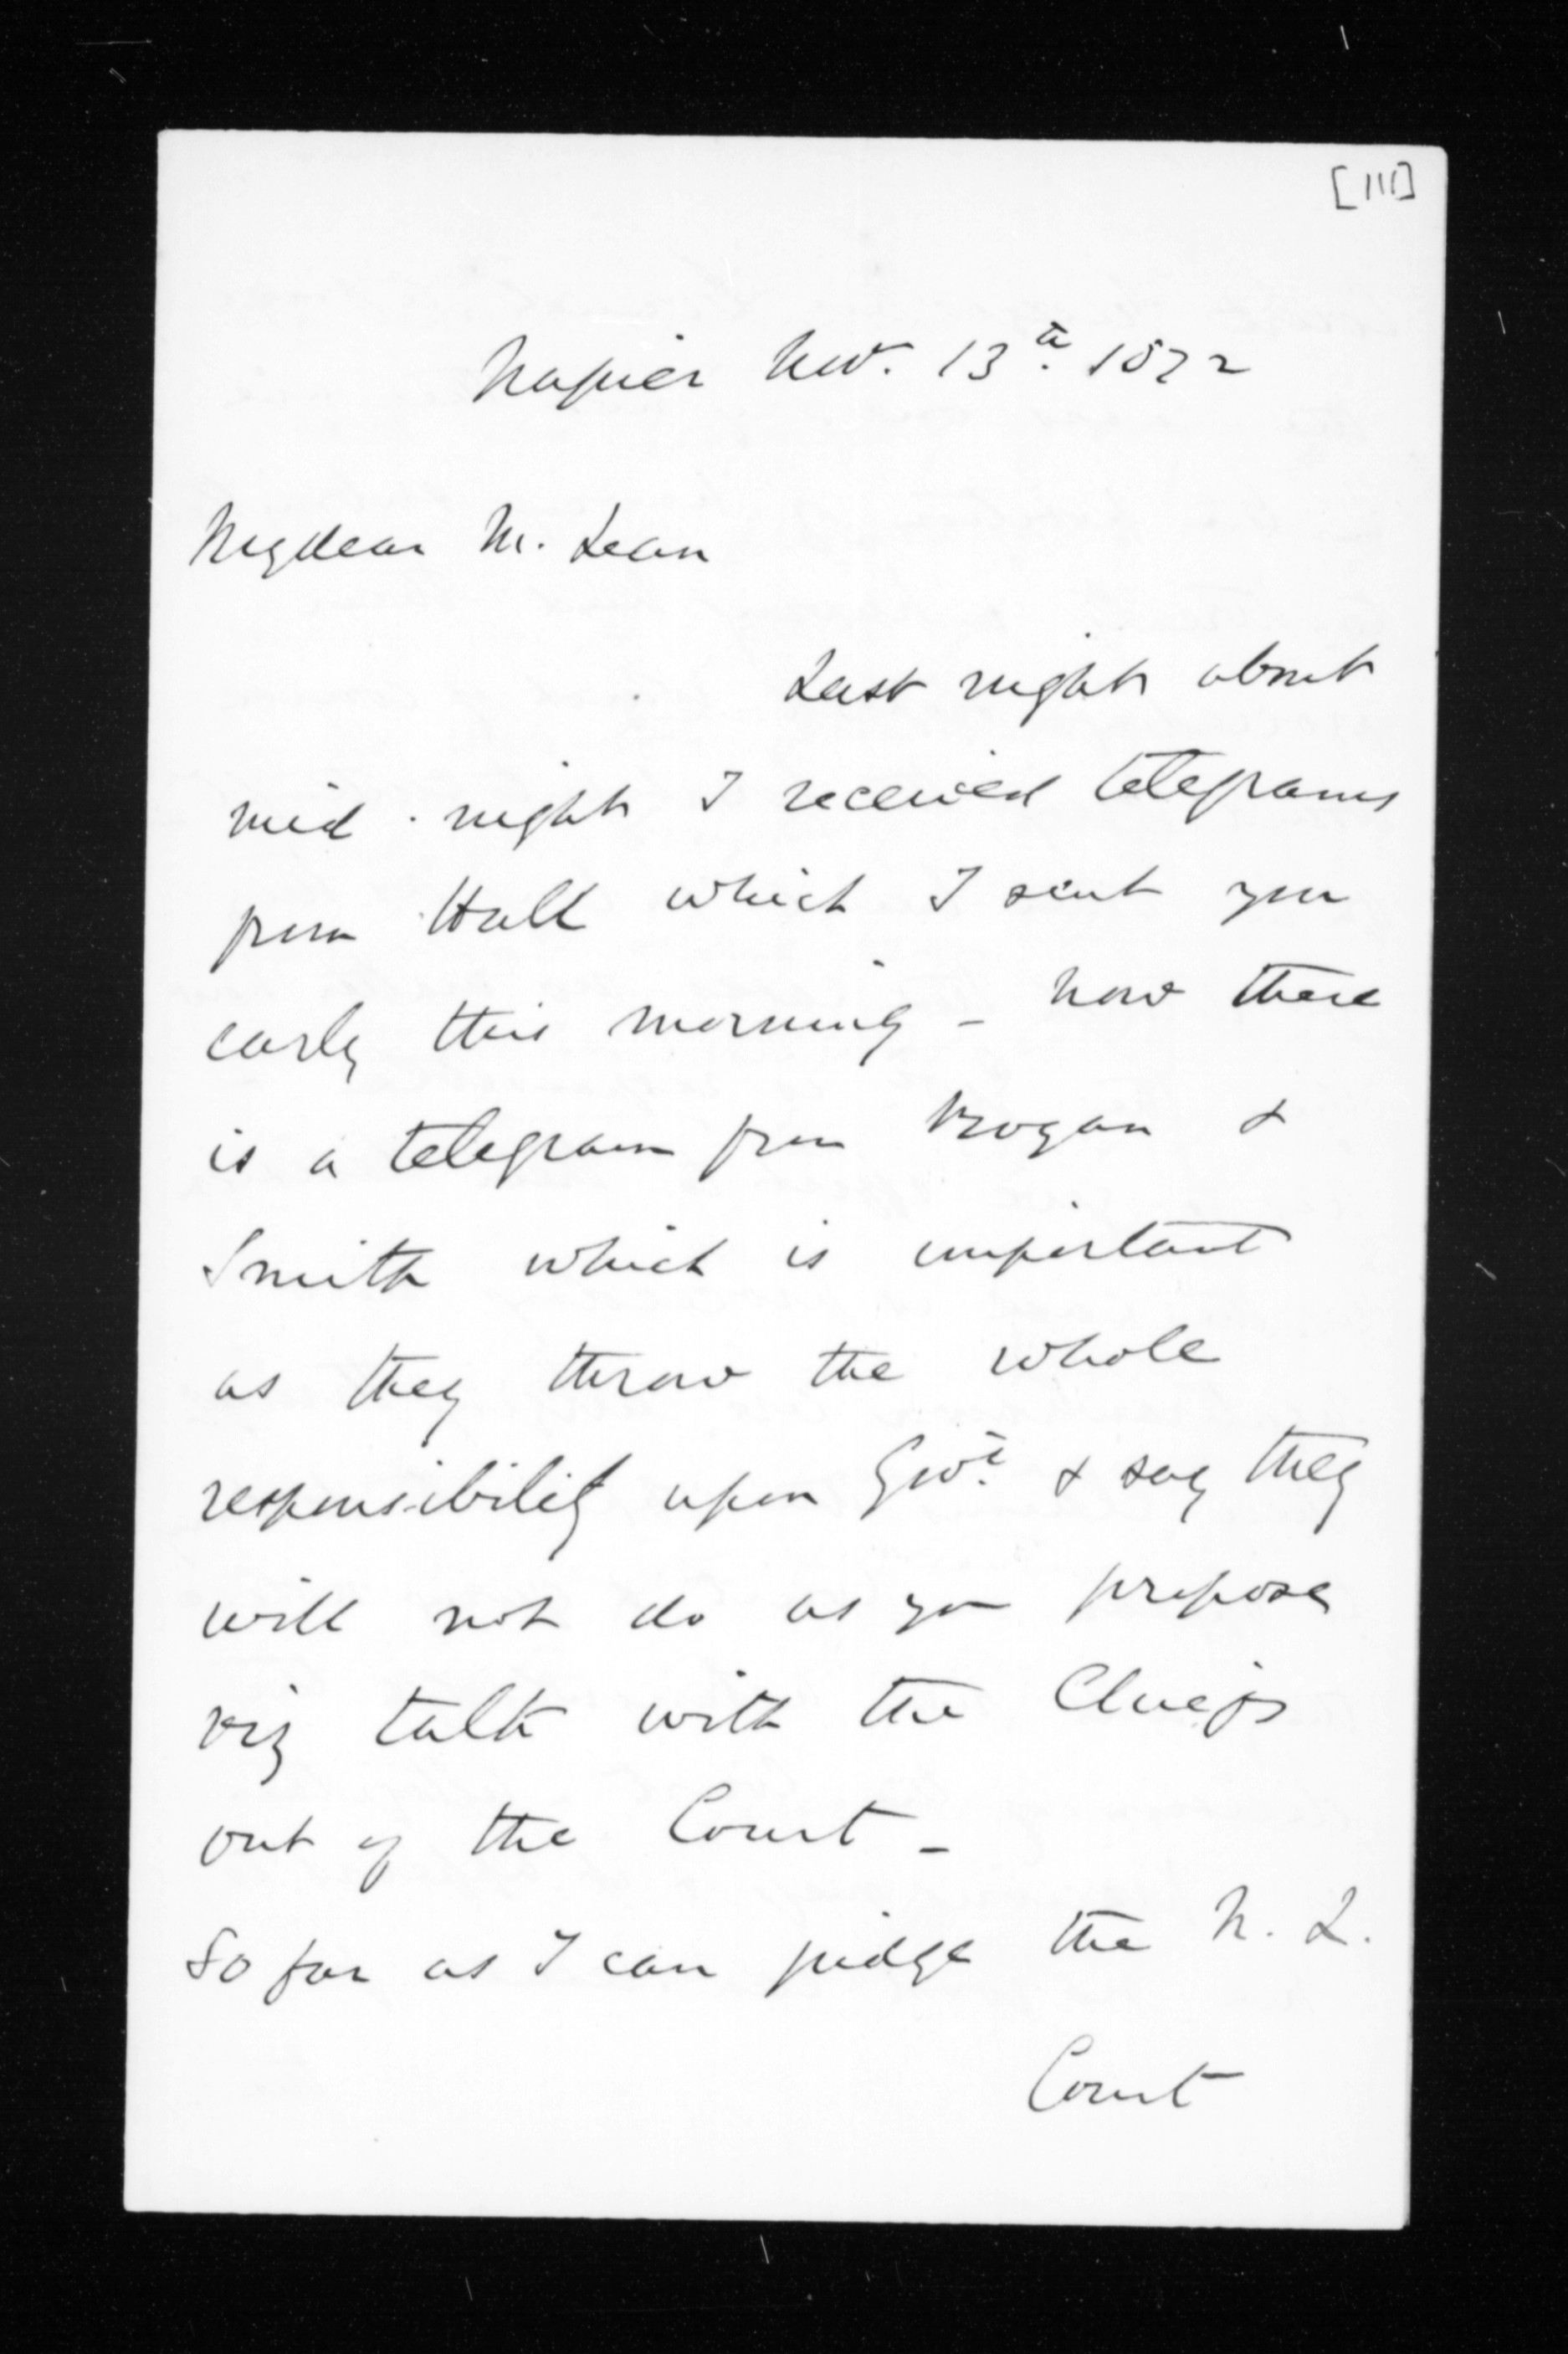 [111]
Napier Nov. 13th. 1872
My dear M. Lean
Last night about
mid-night I received telegrams
from Hall which I sent you
early this morning - now there
is a telegram from Rogan &
Smith which is important
as they throw the whole
responsibility upon Govt. & say they
will not do as you propose
viz talk with the Chiefs
out of the Court -
So far as I can judge the N. L.
Court